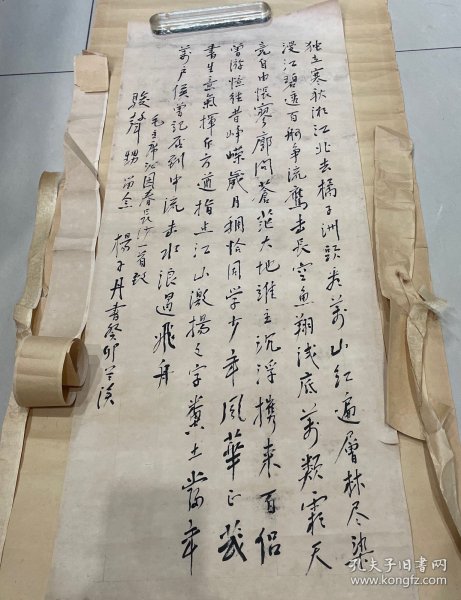 独立寒秋湘江北去橘子洲头看万山红遍层林尽染
漫江碧透百舸争流鹰击长空鱼翔浅底万类霜天
竞自由怅寥廓问苍茫大地谁主沉浮携来百侣
曾游忆往昔峥嵘岁月稠恰同学少年风华正茂
书生意气挥斥方遒指点江山激扬文字粪土当年
万户侯曾记否到中流击水浪遏飞舟
毛主席沁园春长沙一首致
骏声甥留念 杨子丹书癸卯
孔夫子旧书网
www.kongfz.com